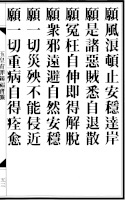 願風浪頓止安穩達岸
願是諸惡賊悉自退散
願冤枉自伸即得解脫
願衆邪遠避自然安穩
願一切災殃不能侵近
願一切重病自得痊愈